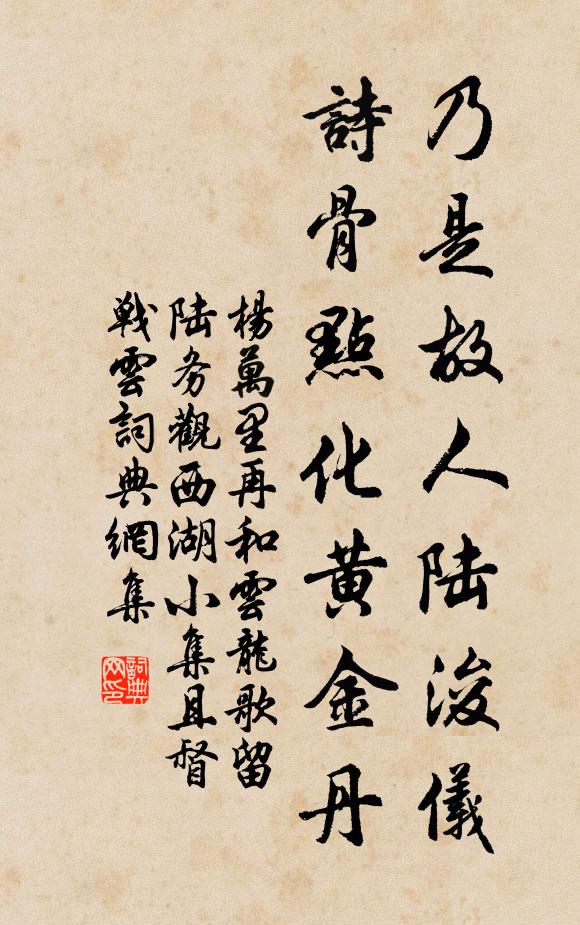 乃是故人陆浚儀
詩骨點化黃金丹
楊萬里再和雲龍歌留
陆务觀西湖小集且督
戦雲詞典網集
詞典网印